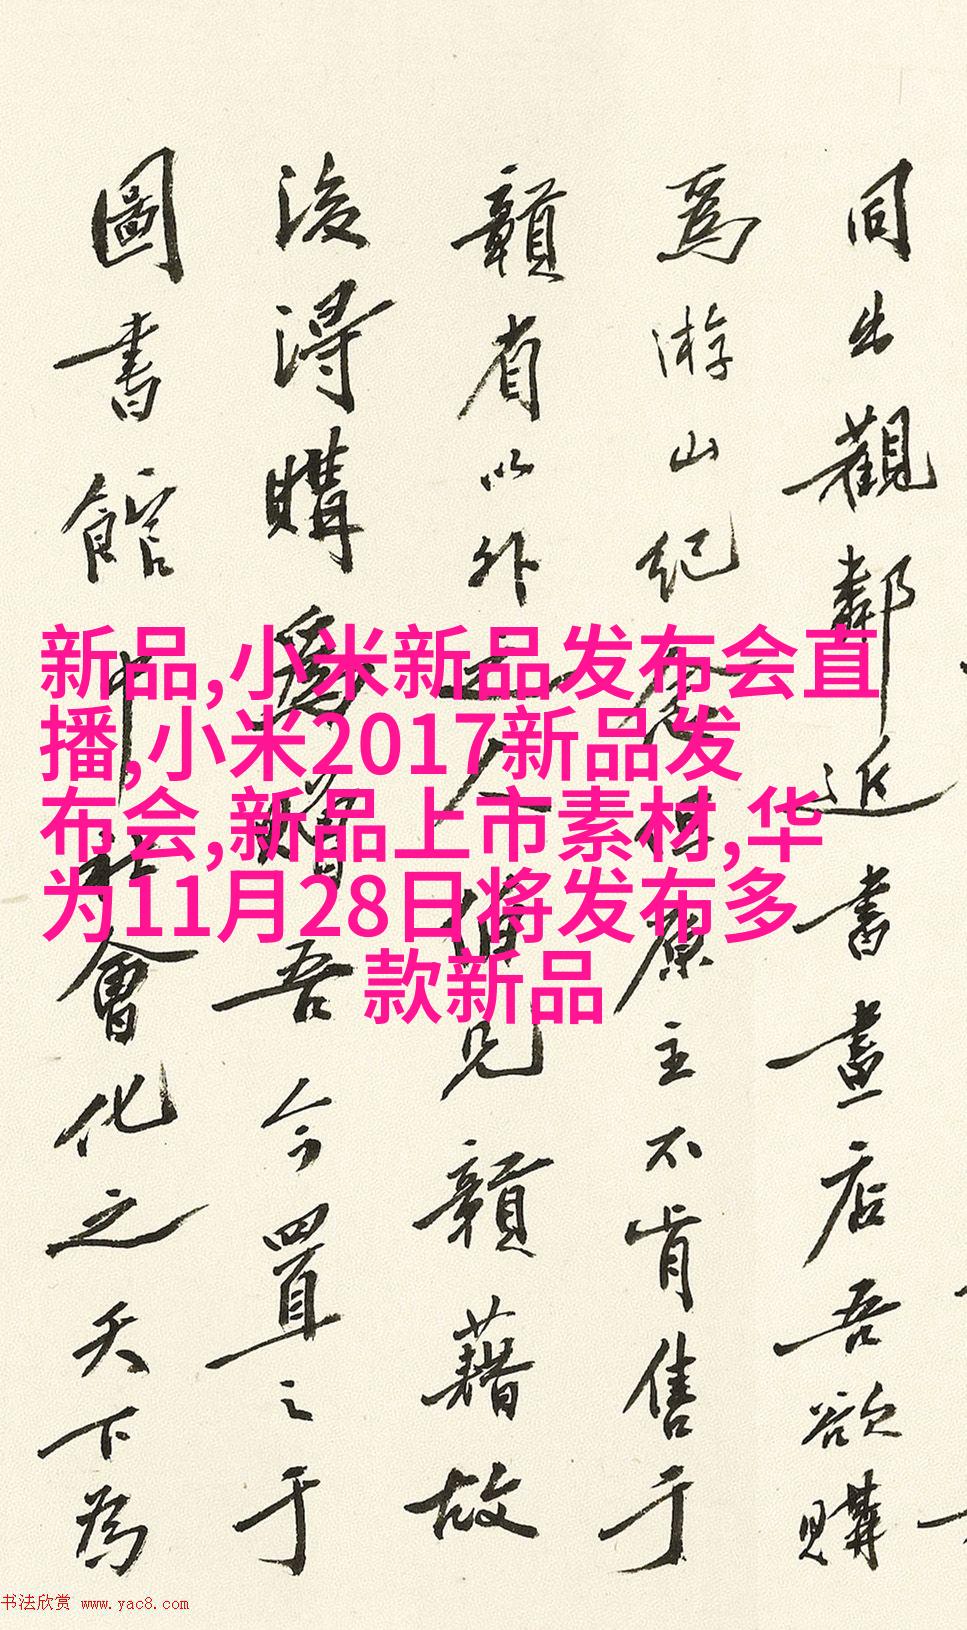 同出觀鄰近書畫店吾欲購
爲游山紀念但原主不肯售于
贛省以外之人見贛藉故
後得購爲贈吾今置之于
圖書館社會化之天下為
新品,小米新品发布会直
播,小米2017新品发
布会,新品上市素材,华
为11月28日将发布多
款新品
书法欣赏 www.yac8.com